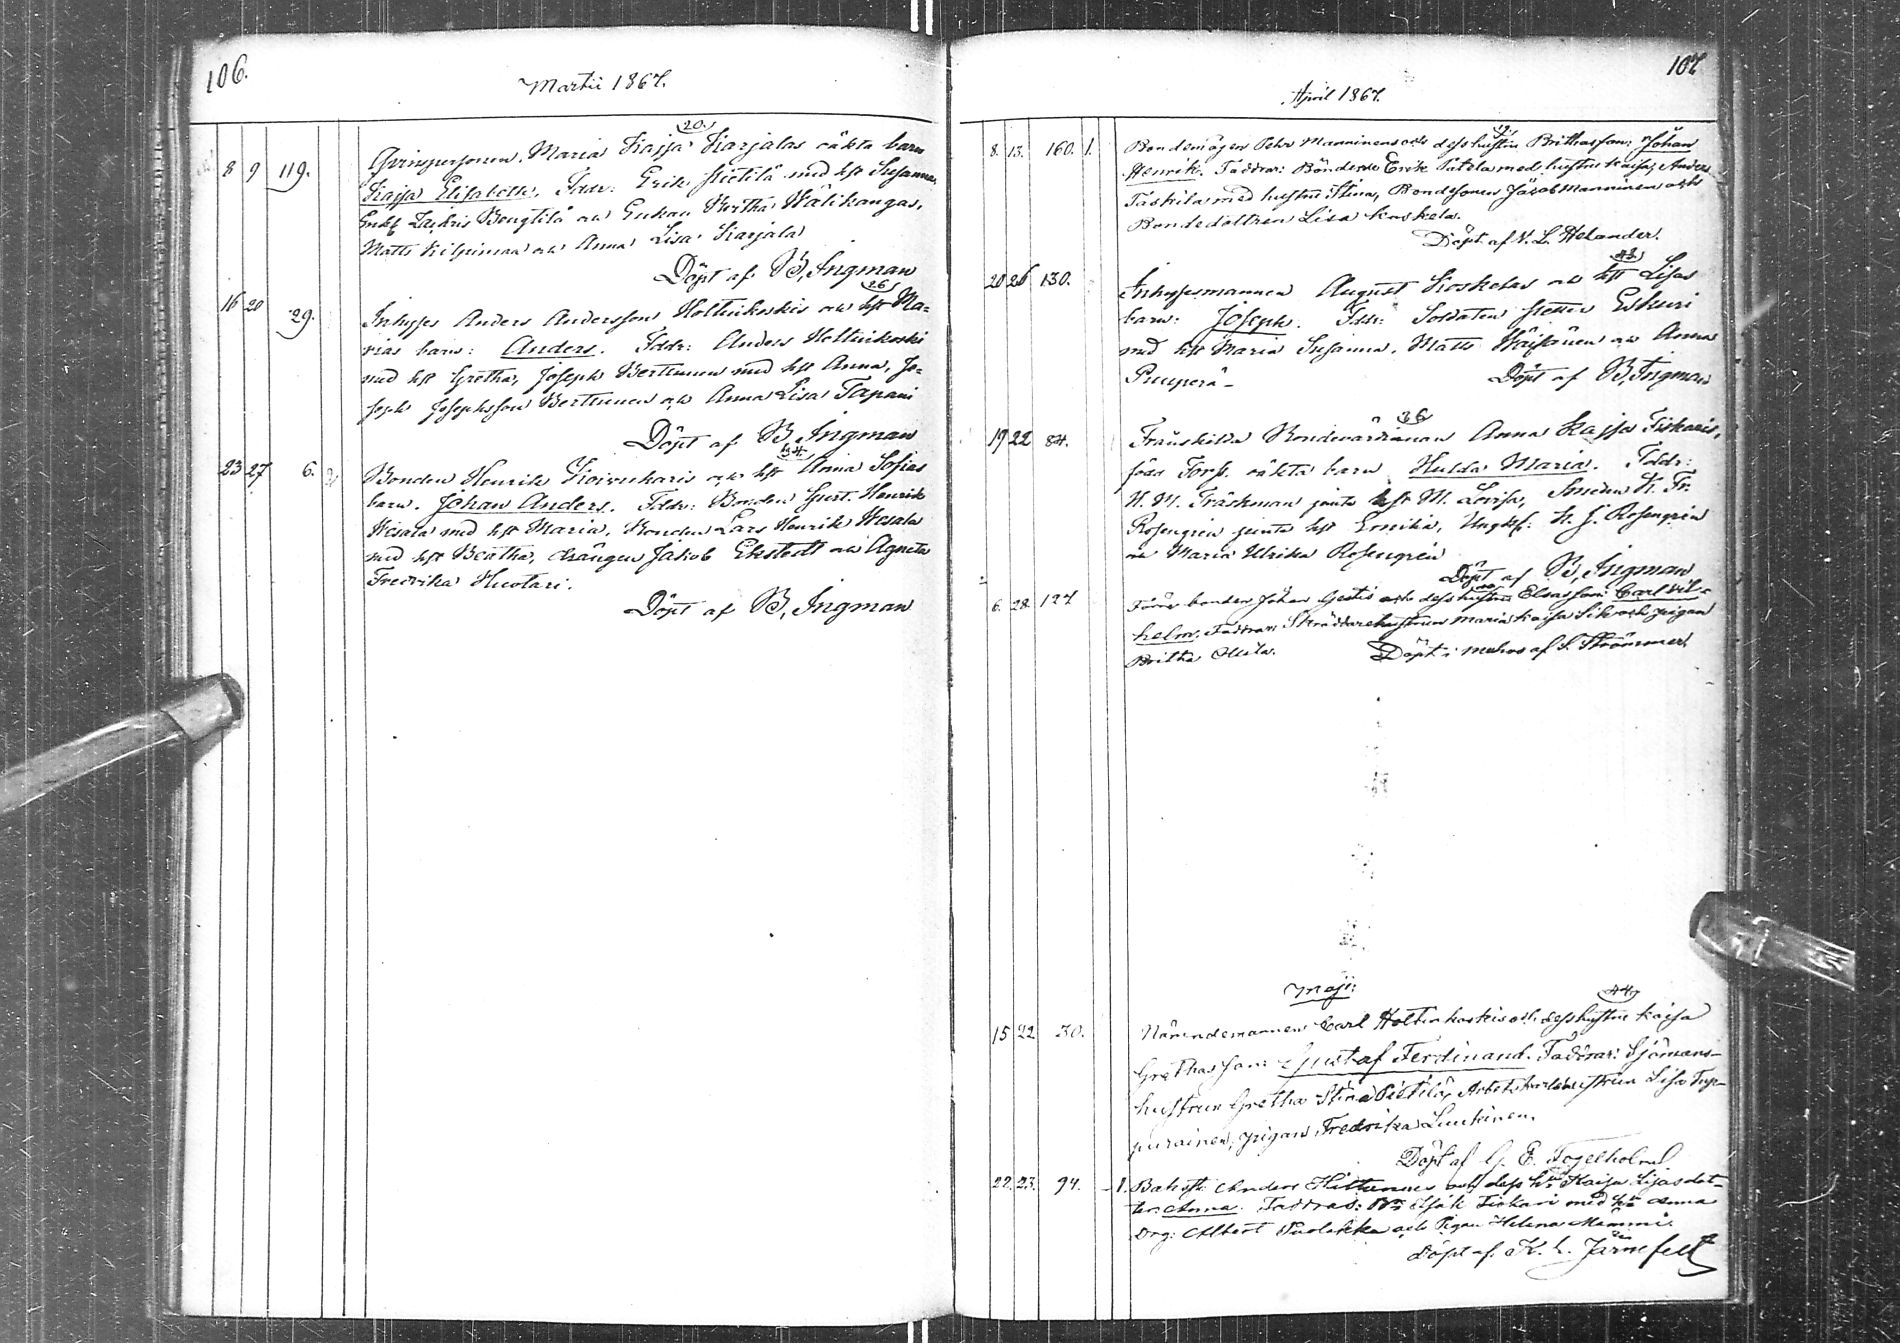 106.
Martii 1867.
20.
8 9 119. Qvinspersonen Maria Kajsa Karjalas oäkta barn
Kajsa Elisabeth. Fddr: Erik Pietilä med hst Susanna,
Enkl. Zachris Bengtilä och Enkan Britha Wälikangas,
Matts Kilpimaa och Anna Lisa Karjala
Döpt af B, Ingman
26
16 20 29. Inhyses Anders Andersson Holtinkoskis och hst Ma-
rias barn: Anders. Fddr: Anders Holtinkoski
med hst Gretha, Joseph Bertunen med hst Anna, Jo-
seph Josephsson Bertunen och Anna Lisa Tapani
Döpt af B, Ingman
44
23 27 6. Bonden Henrik Koivukaris och hst Anna Sofias
barn. Johan Anders. Fddr: Bonden Gust. Henrik
Wesala med hst Maria, Bonden Lars Henrik Wesala
med hst Beatha, drängen Jakob Ekstedt och Agneta
Fredrika Huotari.
Döpt af B, Ingman
107
April 1867.
8. 13. 160. 1. Bondemågen Pehr Manninens och dess hustru Brithas son: Johan
Henrik. Faddrar: Bönderne Erik Patela med hustru Kaisa, Anders
Taskila med hustru Stina, Bondesonen Jacob Manninen och
Bondedottren Lisa Koskela.
Döpt af V. L. Helander.
43
20 26 130. Inhysesmannen August Koskelas och hst Lisas
barn: Joseph. Fddr: Soldaten Petter Eskuri
med hst Maria Susanna, Matts Wäisänen och Anna
Puuperä-
Döpt af B, Ingman
36
19 22 84. Frånskilda Bondevärdinnan Anna Kajsa Fiskaris,
född Forss. oäkta barn Hulda Maria. Fddr:
H. M. Träskman jemte hst M. Lovisa, Smeden K. Fr.
Rosengrén jemte hst Emilia, Ungkf: K. J. Rosengrén
och Maria Ulrika Rosengrén
Döpt af B, Ingman
6. 28. 127 Förre bonden Johan Gestis och dess hustru Elsas son: Carl Vil-
helm. Faddrar: Skräddarehustrun Maria Kaisa Sik och pigan
Britha Oleila.
Döpt i Muhos af S. Strömmer.
Maji:
44
15 22 30. Närindemannen Carl Holtinkoskis och dess hustru Kaisa
Grethas son: Gustaf Ferdinand. Faddrar: Sjömans-
hustrun Gretha Stina Pietilä, Arbetskarlshustrun Lisa Tup-
purainen, pigan Fredrika Luukinen.
Döpt af G. E. Fogelholm
22. 23. 94. 1. Backst: Anders Hiltunens och dess hu Kaisa Lisas dot-
ter: Anna. Faddrar: Bn Isak Fiskari med hu Anna
Drg: Albert Tuolukka och Pigan Helena Mammi.
Döpt af K. L. Järnefelt